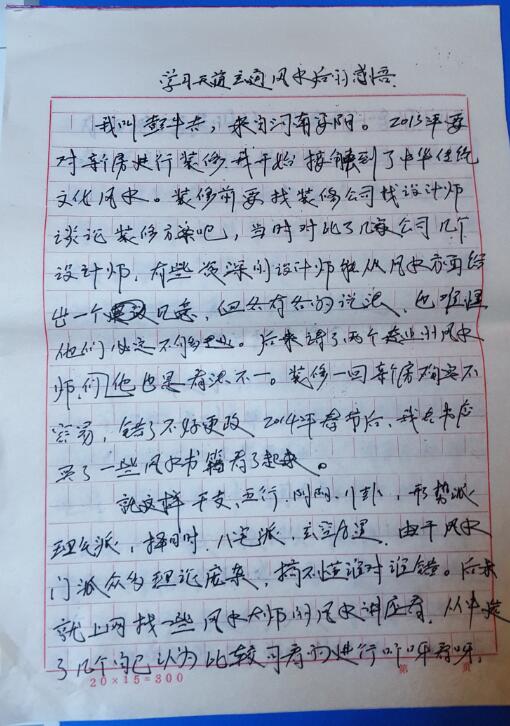 学习天道玄通风水后的感悟
我叫 ，来自河南 阳。2013年要
对新房进行装修，我开始接触到了中华传统
文化风水。装修前要找装修公司找设计师
谈论装修方案吧，当时对比了几家公司几个
设计师，有些资深的设计师能从风水方面给
出一个 ，但各有各的说法，也难怪
他们 不够专业。后来请了两个专业的风水
师，们他也是看法不一。装修一回新房确实不
容易，错了不好更改 2014年春节后，我去书店
买了一些风水书籍看了起来。
就这样干支，五行，阴阳，八卦，形势派
理气派，择日时，八宅派，玄空 ，由于风水
门派众多理论庞杂，搞不懂谁对谁错。后来
就上网找一些风水大师的风水讲座看，从中
了几个自己认为比较 进行听呀看呀，
20×15=300
第 页